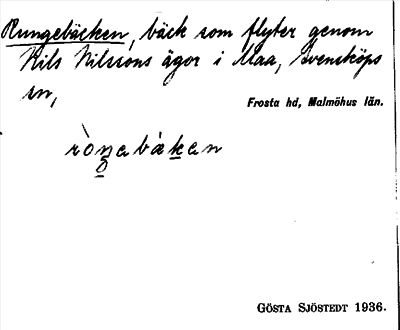 Rungebäcken, bäck som flyter genom
Nils Nilssons ägor i Maa, Svensköps
sn,
Frosta hd, Malmöhus län.
ròŋebàken
GÖSTA SJÖSTEDT 1936.